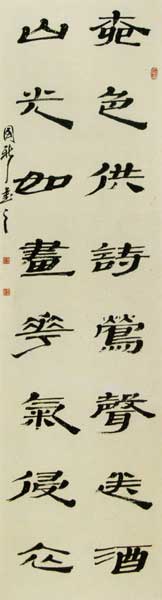 春色供詩鶯聲送酒
山光如畫華氣侵衣
國新書